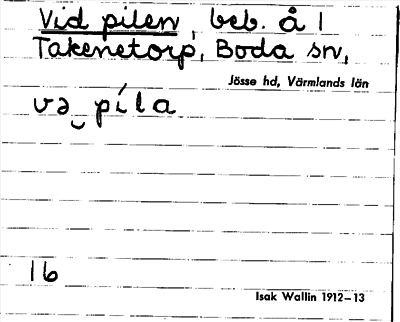 Vid pilen, beb. å 1
Takenetorp, Boda sn,
Jösse hd, Värmlands län
və‿ píla
16
Isak Wallin 1912–13